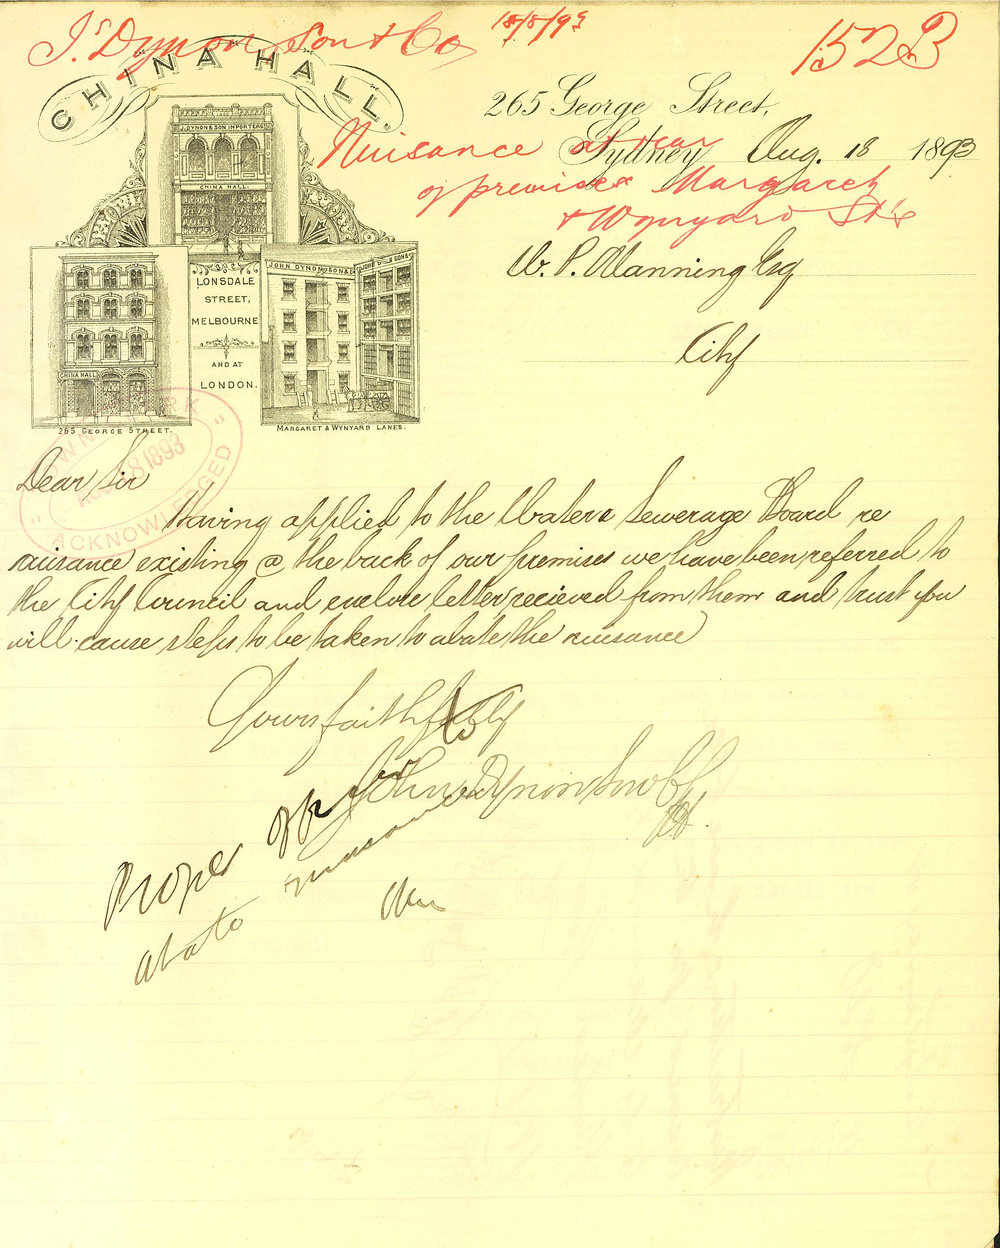 Js Dynon, Son & Co
18/8/93
1522B
CHINA HALL.
J. DYNON & SON IMPORTERS
CHINA HALL.
265 George Street,
Sydney, Aug. 18 1893
Nuisance at rear
of premises Margaret
& Wynyard St's
W. P. Manning Esq
City
CHINA HALL
265 GEORGE STREET.
LONSDALE
STREET,
MELBOURNE
AND AT
LONDON.
JOHN DYNON & SON & CO
JOHN D SON & C
MARGARET & WYNYARD LANES.
TOWN CLERK
AUG 18 1893
ACKNOWLEDGED
Dear Sir
Having applied to the Water & Sewerage Board re
nuisance existing @ the back of our premises we have been referred to
the City Council and enclose letter recieved from them and trust you
will cause steps to be taken to abate the nuisance
Yours faithfully
for John Dynon Son & Co
Proper off
abate nuisance